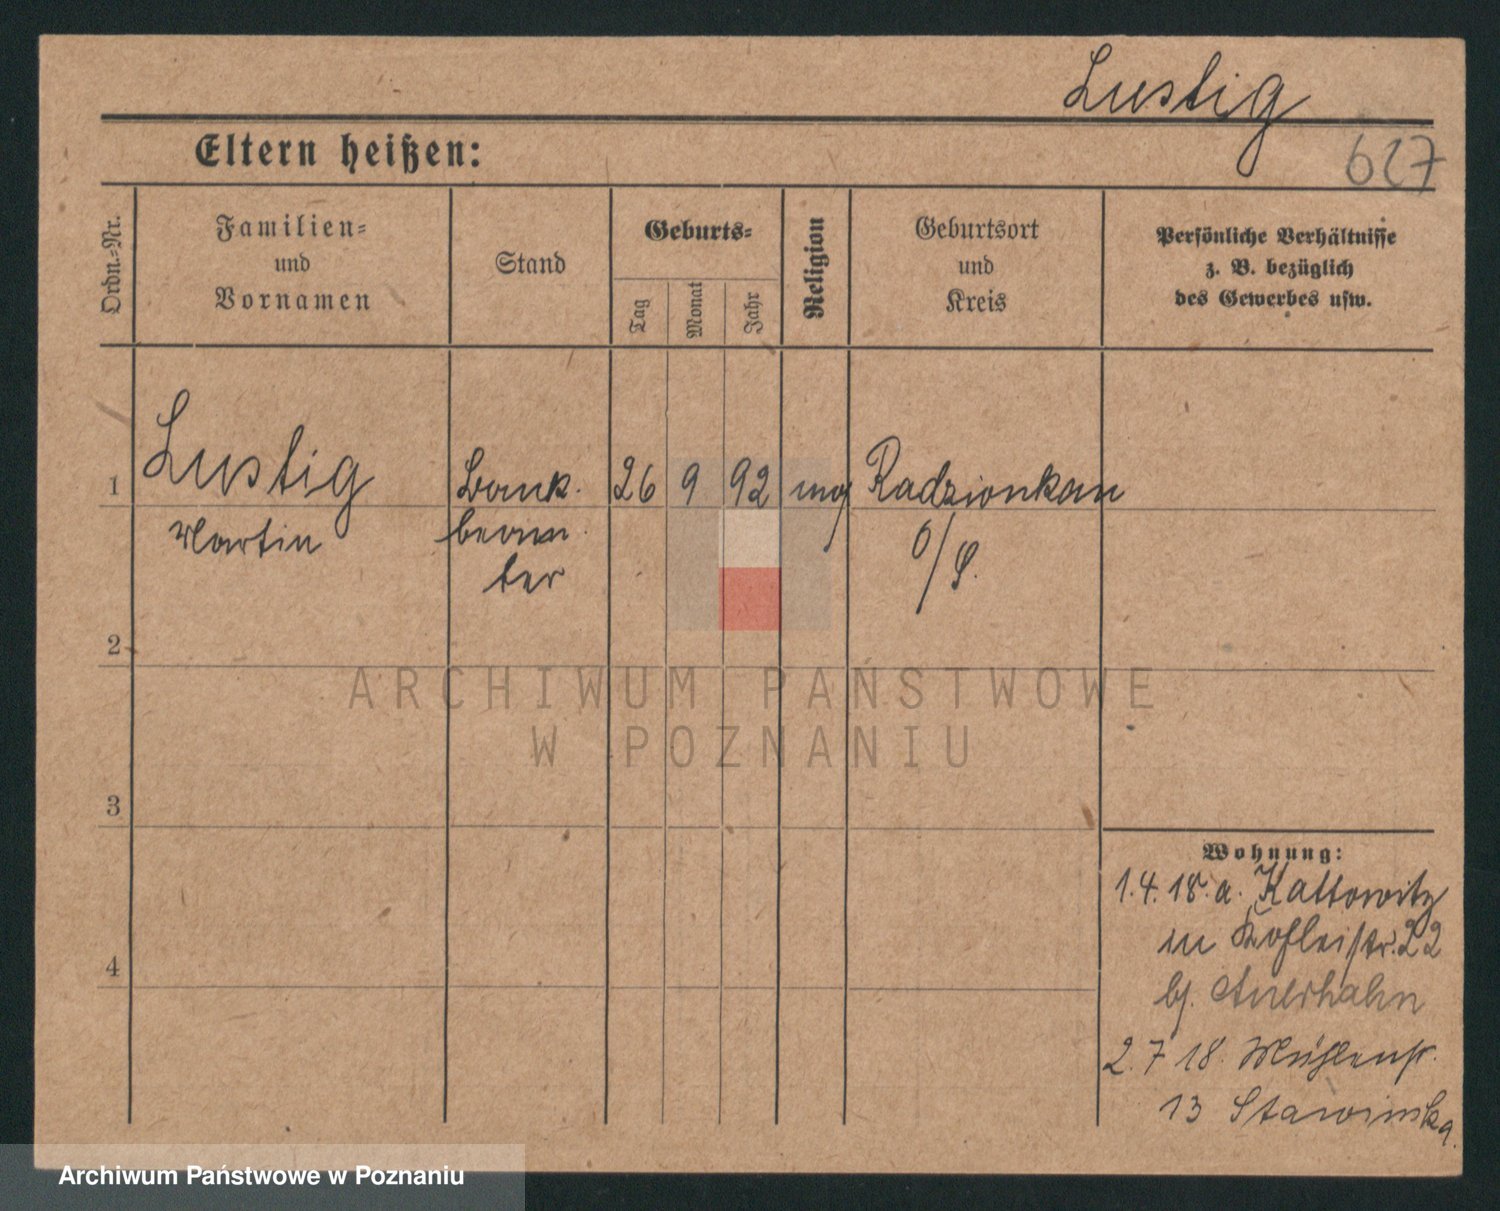 Lustig
627
Eltern heißen:
Ordn.-Nr.
Familien-
und
Vornamen
Stand
Geburts-
Tag
Monat
Jahr
Religion
Geburtsort
und
Kreis
Persönliche Verhältnisse
z. B. bezüglich
des Gewerbes usw.
1
Lustig
Martin
Bank-
beam-
ter
26
9
92
mos
Radzionkau
O/S.
2
3
4
ARCHIWUM PAŃSTWOWE
W POZNANIU
Wohnung:
1.4.18. a. Kattowitz
in 22
bj. Auerhahn
2.7 18. Mühlenstr.
13 Stawinska.
Archiwum Państwowe w Poznaniu